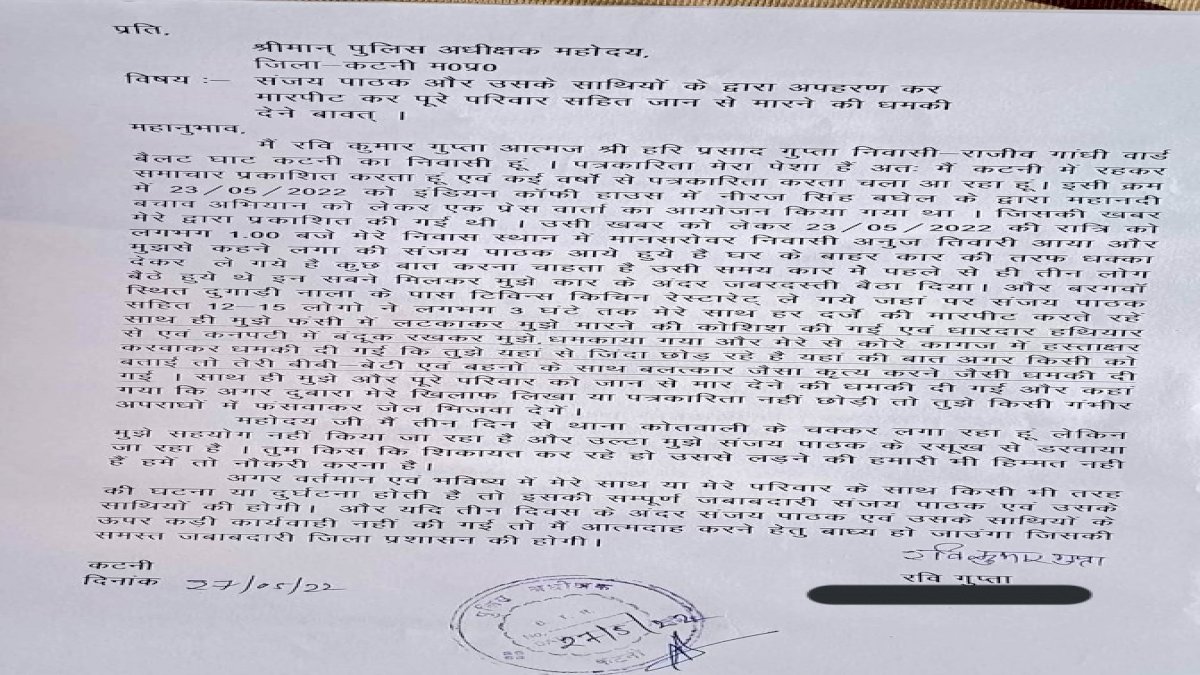 प्रति,
श्रीमान् पुलिस अधीक्षक महोदय,
जिला–कटनी म०प्र०
विषय :– संजय पाठक और उसके साथियों के द्वारा अपहरण कर
मारपीट कर पूरे परिवार सहित जान से मारने की धमकी
देने बावत् ।
महानुभाव,
मैं रवि कुमार गुप्ता आत्मज श्री हरि प्रसाद गुप्ता निवासी–राजीव गांधी वार्ड
बैलट घाट कटनी का निवासी हूं । पत्रकारिता मेरा पेशा है अतः मैं कटनी में रहकर
समाचार प्रकाशित करता हूं एवं कई वर्षो से पत्रकारिता करता चला आ रहा हूं। इसी क्रम
में 23/05/2022 को इंडियन कॉफी हाउस में नीरज सिंह बघेल के द्वारा महानदी
बचाव अभियान को लेकर एक प्रेस वार्ता का आयोजन किया गया था । जिसकी खबर
मेरे द्वारा प्रकाशित की गई थी । उसी खबर को लेकर 23/05/2022 की रात्रि को
लगभग 1.00 बजे मेरे निवास स्थान में मानसरोवर निवासी अनुज तिवारी आया और
मुझसे कहने लगा की संजय पाठक आये हुये है घर के बाहर कार की तरफ धक्का
देकर ले गये है कुछ बात करना चाहता है उसी समय कार मे पहले से ही तीन लोग
बैठे हुये थे इन सबने मिलकर मुझे कार के अंदर जबरदस्ती बैठा दिया। और बरगवॉ
स्थित दुगाडी नाला के पास टिविन्स किचिन रेस्टारेट ले गये जहां पर संजय पाठक
सहित 12–15 लोगो ने लगभग 3 घंटे तक मेरे साथ हर दर्जे की मारपीट करते रहे
साथ ही मुझे फंसी में लटकाकर मुझे मारने की कोशिश की गई एवं धारदार हथियार
से एवं कनपटी में बदूंक रखकर मुझे धमकाया गया और मेरे से कोरे कागज में हस्ताक्षर
करवाकर धमकी दी गई कि तुझे यहां से जिंदा छोड़ रहे है यहां की बात अगर किसी को
बताई तो तेरी बीबी–बेटी एवं बहनों के साथ बलत्कार जैसा कृत्य करने जैसी धमकी दी
गई । साथ ही मुझे और पूरे परिवार को जान से मार देने की धमकी दी गई और कहा
गया कि अगर दुबारा मेरे खिलाफ लिखा या पत्रकारिता नहीं छोड़ी तो तुझे किसी गंभीर
अपराधो में फसवाकर जेल भिजवा देगें।
महोदय जी मैं तीन दिन से थाना कोतवाली के चक्कर लगा रहा हूं लेकिन
मुझे सहयोग नही किया जा रहा है और उल्टा मुझे संजय पाठक के रसूख से डरवाया
जा रहा है । तुम किस कि शिकायत कर रहे हो उससे लड़ने की हमारी भी हिम्मत नही
है हमें तो नौकरी करना है।
अगर वर्तमान एवं भविष्य में मेरे साथ या मेरे परिवार के साथ किसी भी तरह
की घटना या दुर्घटना होती है तो इसकी सम्पूर्ण जबाबदारी संजय पाठक एवं उसके
साथियों की होगी। और यदि तीन दिवस के अंदर संजय पाठक एवं उसके साथियों के
ऊपर कडी कार्यवाही नहीं की गई तो मैं आत्मदाह करने हेतु बाध्य हो जाउंगा जिसकी
समस्त जबाबदारी जिला प्रशासन की होगी।
रवि कुमार गुप्ता
कटनी
रवि गुप्ता
दिनांक 27/05/22
पुलिस अधीक्षक
27/5/22
कटनी